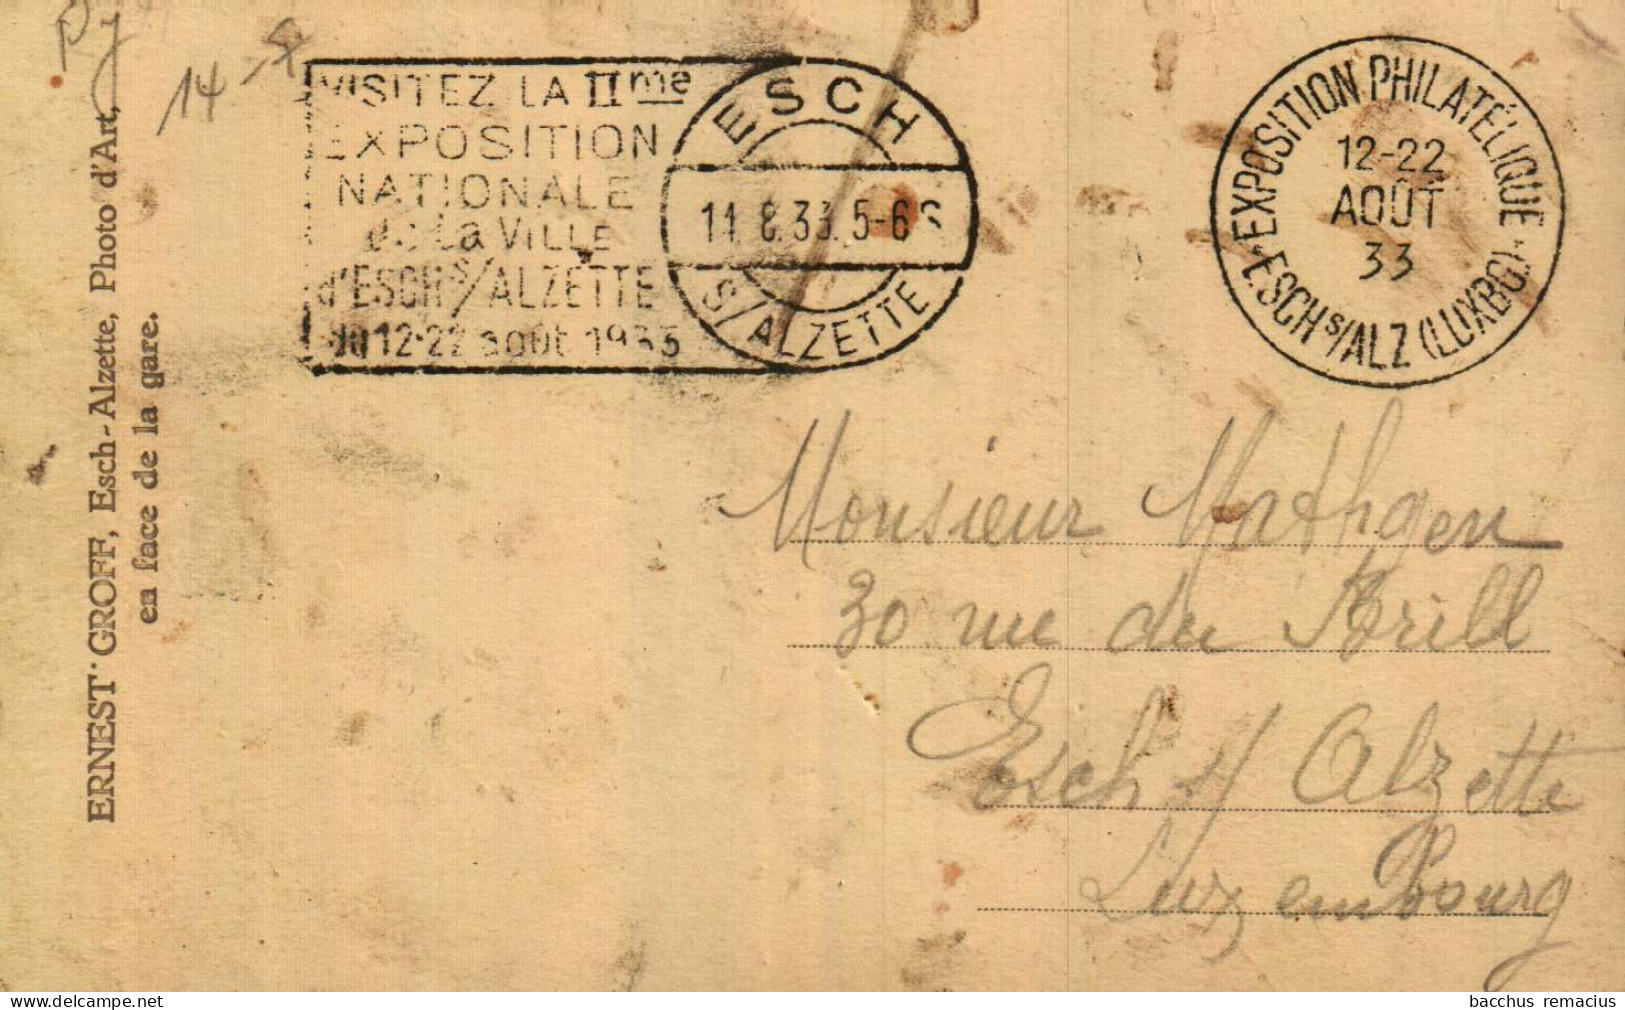 Py
14
ERNEST GROFF, Esch-Alzette, Photo d'Art,
en face de la gare.
VISITEZ LA IIme
EXPOSITION
NATIONALE
de La VILLE
d'ESCH s/ALZETTE
du 12-22 août 1933
ESCH
11.8.33. 5-6 S
S/ALZETTE
EXPOSITION PHILATÉLIQUE
12-22
AOÛT
33
ESCH s/ALZ (LUXBG)
Monsieur Mathgen
30 rue du Brill
Esch s/ Alzette
Luxembourg
bacchus remacius